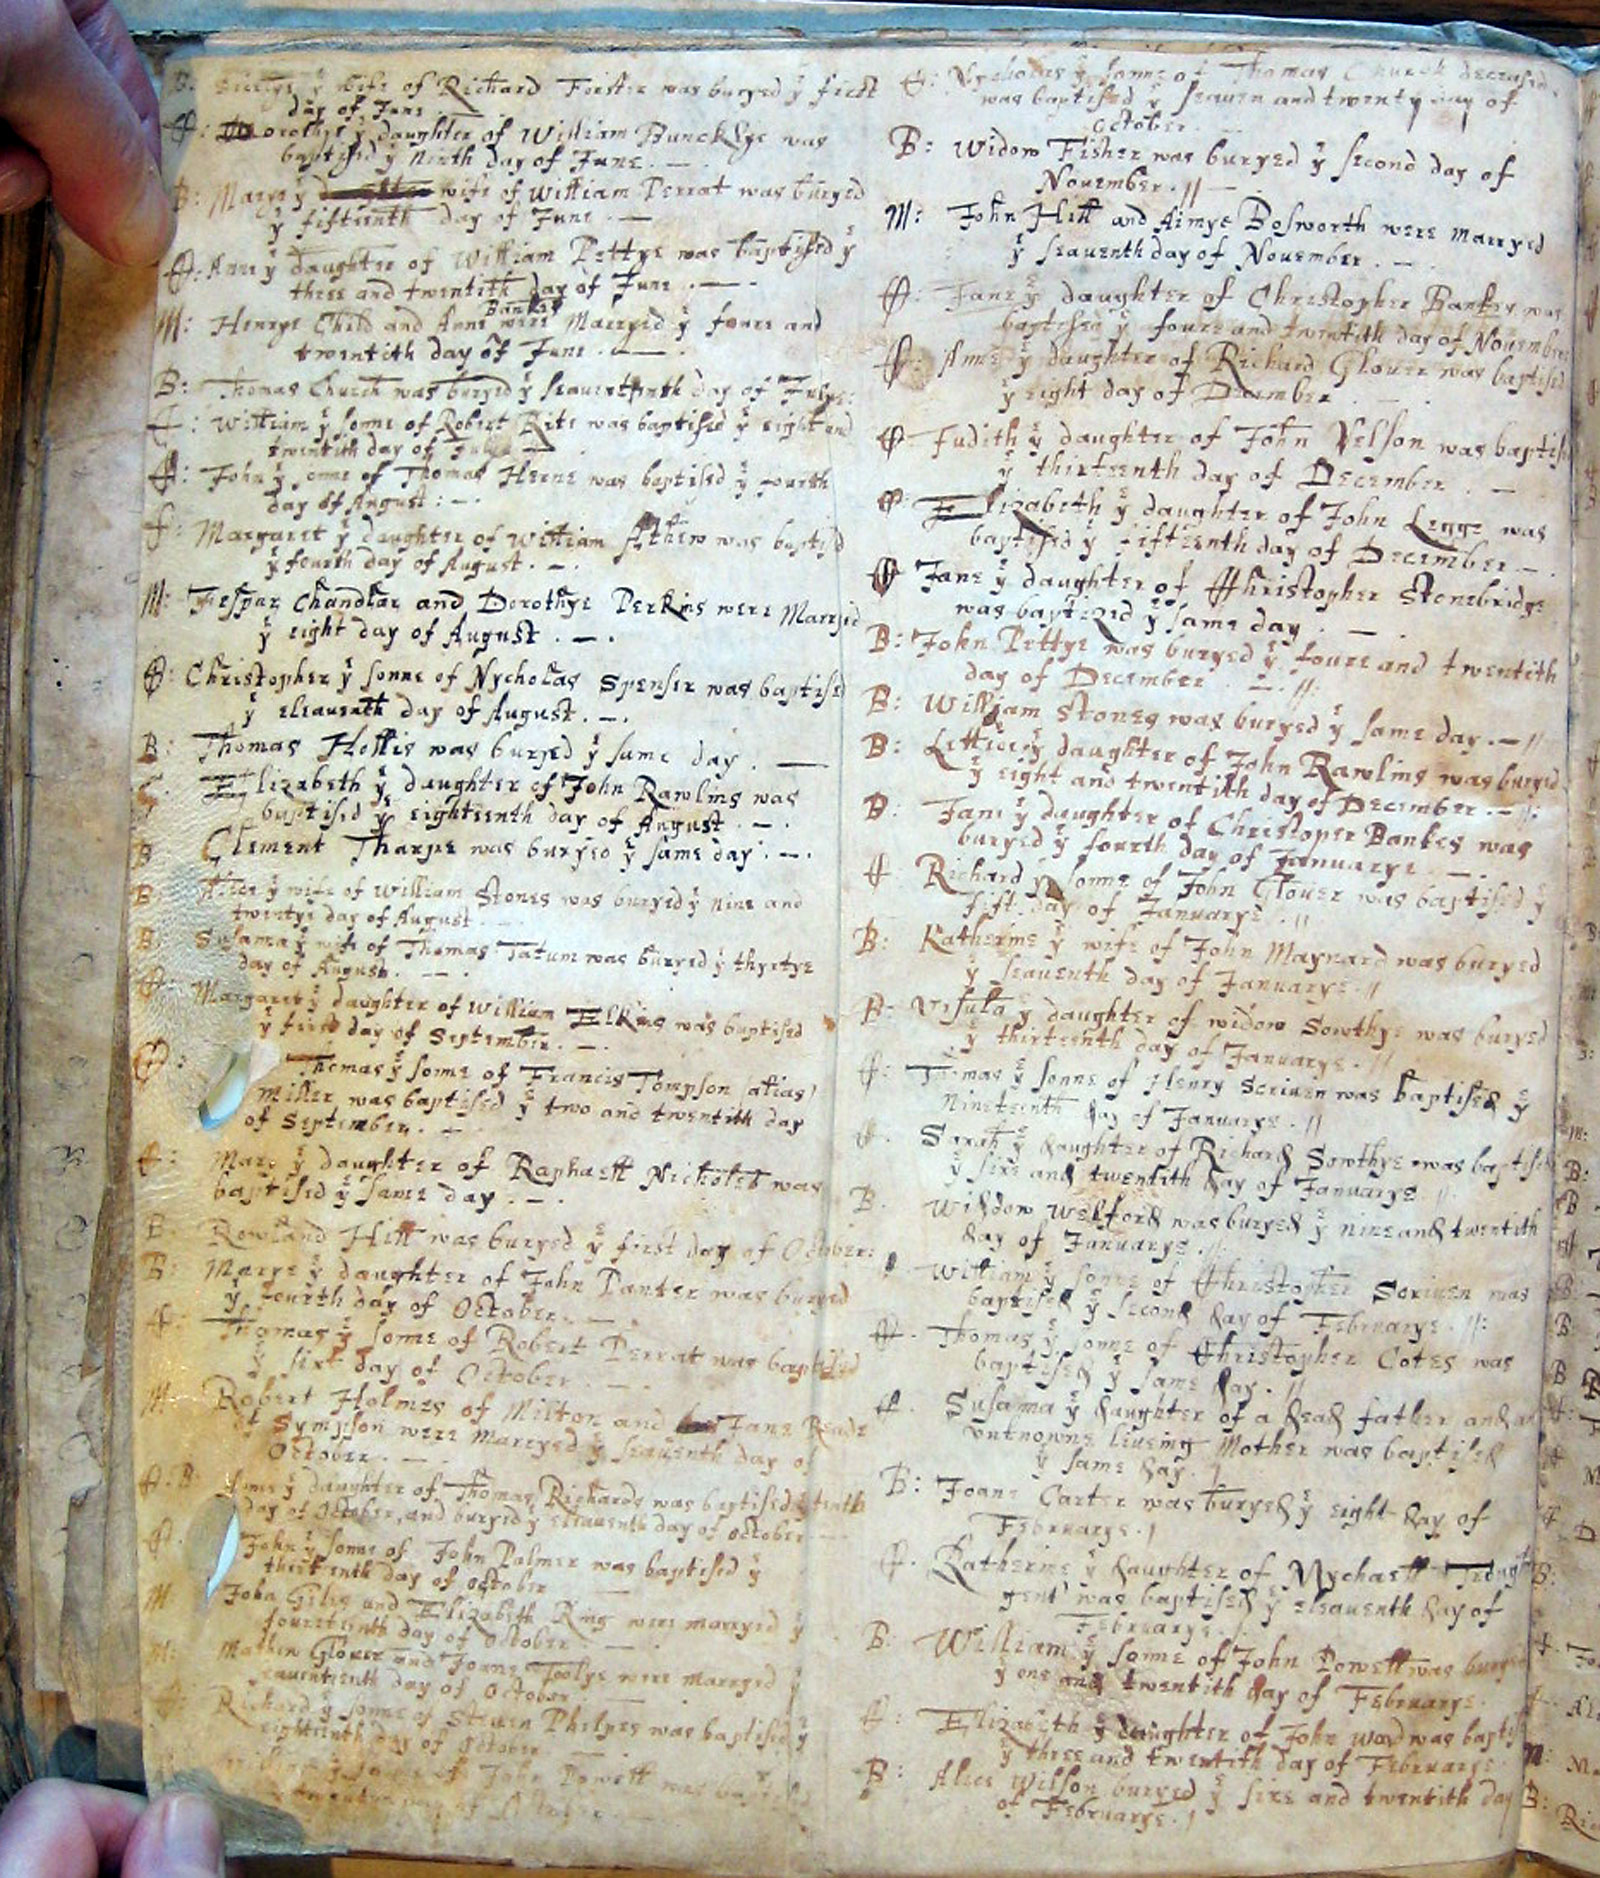 B: yͤ wife of Richard Forster was buryed yͤ first
day of June
C: Dorothye yͤ daughter of William Buncklye was
baptised yͤ Ninth day of June . — .
B: Marye yͤ wife of William Perrat was buryed
yͤ fifteenth day of June . —
C: Anne yͤ daughter of William Pettye was baptised yͤ
three and twentith day of June . — .
Bankes
M: Henrye Child and Anne were Marryed yͤ foure and
twentith day of June . — .
B: Thomas Church was buryed yͤ seauententh day of Julye:
C: William yͤ sonne of Robert Rite was baptised yͤ eight and
twentith day of Julye —
C: John yͤ sonne of Thomas Herne was baptised yͤ fourth
day of August : — .
C: Margaret yͤ daughter of William was baptised
yͤ fourth day of August . — .
M: Jespar Chandlar and Dorothye Perkins were Marryed
yͤ eight day of August . — .
C: Christopher yͤ sonne of Nycholas Spenser was baptised
yͤ eleauenth day of August . — .
B: Thomas Hollis was buryed yͤ same day . —
C: Elizabeth yͤ daughter of John Rawlins was
baptised yͤ eighteenth day of August . — .
B Clement Tharpe was buryed yͤ same day . — .
B: Alice yͤ wife of William Stones was buryed yͤ nine and
twentye day of August
B: Susanna yͤ wife of Thomas Tatum was buryed yͤ thyrtye
day of August . — .
C: Margaret yͤ daughter of William Elkins was baptised
yͤ first day of September . — .
C: Thomas yͤ sonne of Francis Tompson (alias)
Miller was baptised yͤ two and twentith day
of September . —
C: Mary yͤ daughter of Raphaell Nicholes was
baptised yͤ same day . — .
B. Rowland Hill was buryed yͤ first day of October:
B: Marye yͤ daughter of John Panter was buryed
yͤ fourth day of October . — .
C: Thomas yͤ sonne of Robert Perrat was baptised
yͤ sixt day of October . — .
M. Robert Holmes of Milton and Jane Reade
of Sympson were Marryed yͤ seauenth day of
October . — .
C: B yͤ daughter of Thomas Richards was baptised yͤ tenth
day of October, and buryed yͤ eleauenth day of October
C. John yͤ sonne of John Palmer was baptised yͤ
thirtenth day of October
M John Giles and Elizabeth King were marryed yͤ
fourteenth day of October . — .
M: Mathew Glover and Joane Toolye were marryed yͤ
seauenteenth day of October
C: Richard yͤ sonne of Steuen Phelpes was baptised yͤ
eighteenth day of October
yͤ sonne of John Powell was baptised
day of October
C: Nycholas yͤ sonne of Thomas Church deceased
was baptised yͤ seauen and twenty day of
October .
B: Widow Fisher was buryed yͤ second day of
November . // —
M: John Hill and Aimye Bosworth were marryed
yͤ seauenth day of November . — .
C: Jane yͤ daughter of Christopher Bankes was
baptised yͤ foure and twentith day of November
C: Anne yͤ daughter of Richard Glover was baptised
yͤ eight day of December . — .
C Judith yͤ daughter of John Nelson was baptised
yͤ thirteenth day of December . —
C: Elizabeth yͤ daughter of John Legge was
baptised yͤ fifteenth day of December — .
C Jane yͤ daughter of Christopher Stonebridge
was baptezed yͤ same day . — .
B: John Pettye was buryed yͤ foure and twentith
day of December . — . //:
B: William Stones was buryed yͤ same day . — //
B: Lettice yͤ daughter of John Rawlins was buryed
yͤ eight and twentith day of December . — //:
B. Jane yͤ daughter of Christoper Bankes was
buryed yͤ fourth day of Januarye . — .
C Richard yͤ sonne of John Glover was baptised yͤ
fift day of Januarye . //
B: Katherine yͤ wife of John Maynard was buryed
yͤ seauenth day of Januarye . //
B: Vrsula yͤ daughter of widow Sowthye was buryed
yͤ thirteenth day of Januarye . //
C: Thomas yͤ sonne of Henry Scriuen was baptised yͤ
Nineteenth day of Januarye . //
C. Sarah yͤ daughter of Richard Sowthye was baptised
yͤ sixe and twentith day of Januarye . //
B. Widdow Welford was buryed yͤ nine and twentith
day of Januarye . //
William yͤ sonne of Christopher Scriuen was
baptised yͤ second day of Februarye . //:
C. Thomas yͤ sonne of Christopher Cotes was
baptised yͤ same day . //
C. Susanna yͤ daughter of a dead father and an
vnknowne liueing Mother was baptised
yͤ same day . /
B: Joane Carter was buryed yͤ eight day of
Februarye . /
C. Katherine yͤ daughter of Mychaell
gent was baptised yͤ eleauenth day of
Februarye . /
B: William yͤ sonne of John Powell was buryed
yͤ one and twentith day of Februarye .
C: Elizabeth yͤ daughter of John Ward was baptised
yͤ three and twentith day of Februarye
B: Alice Wilson buryed yͤ sixe and twentith day
of Februarye . /